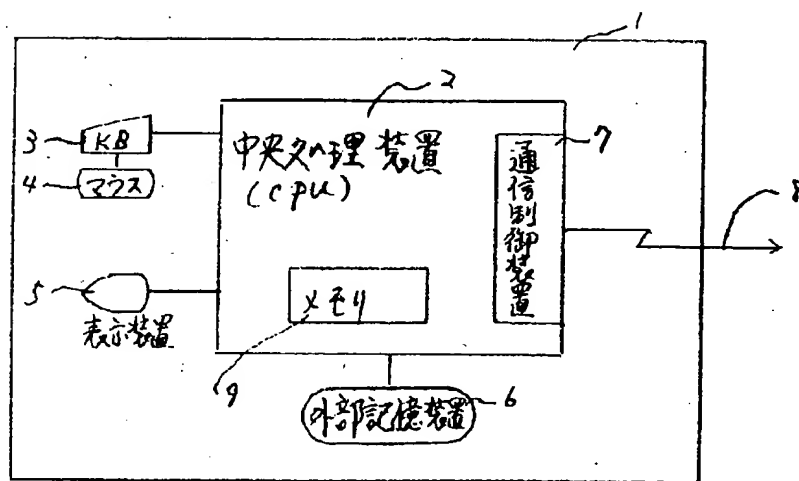 1
2
3
KB
4
マウス
中央処理装置
(CPU)
7
通信制御装置
8
5
表示装置
メモリ
9
外部記憶装置
6